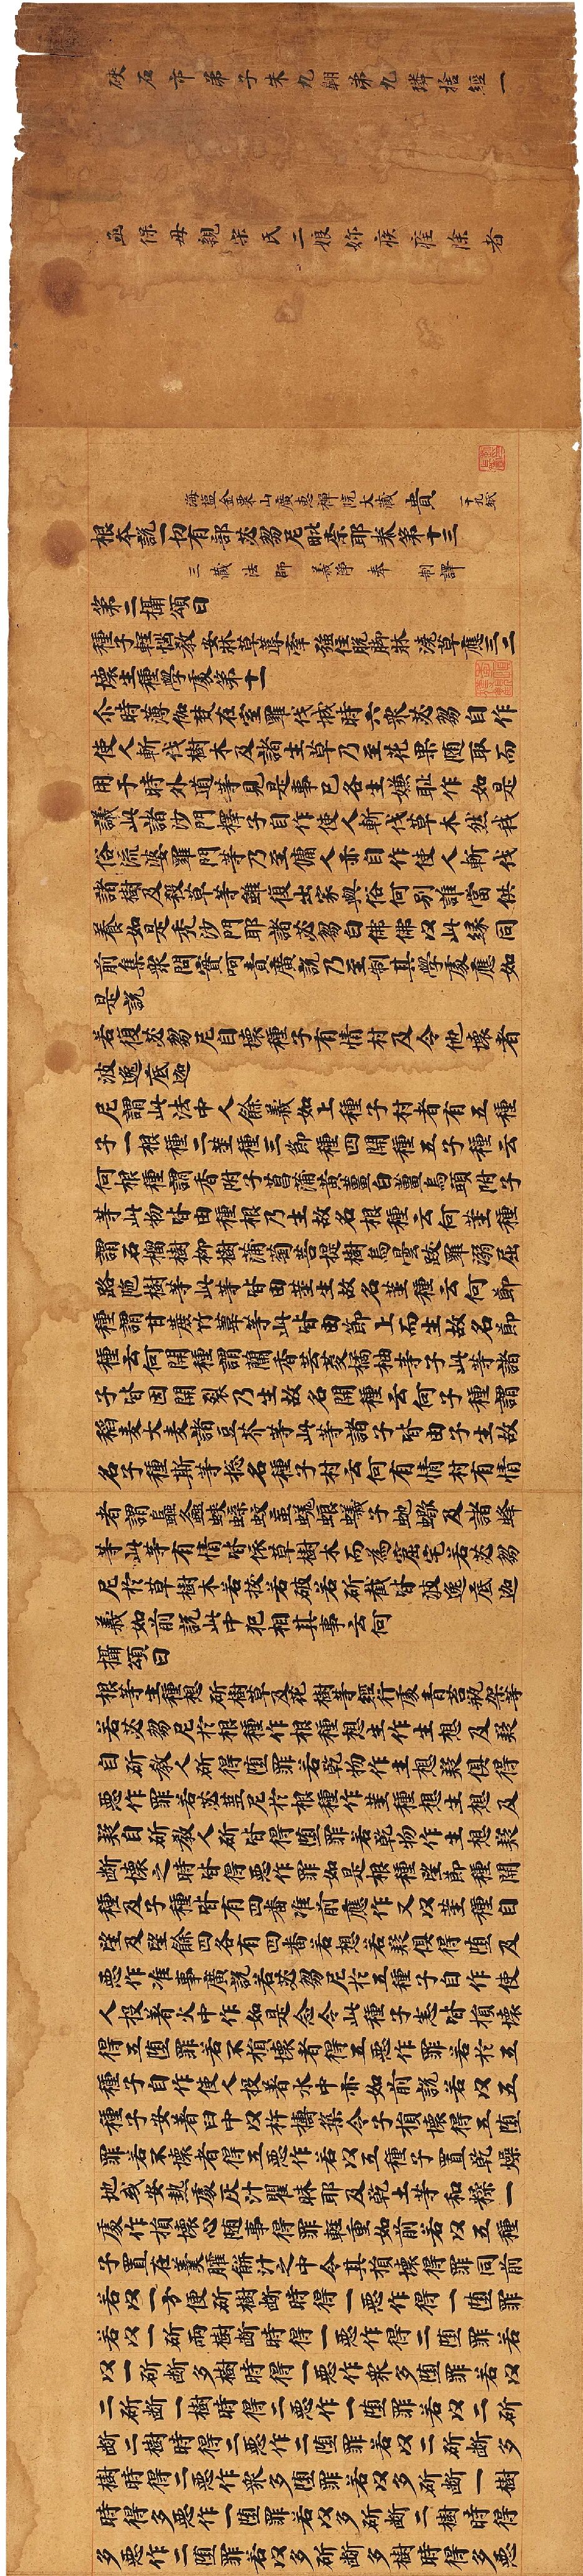 硤石市弟子朱九翱弟九璘捨經一
函保母親宋氏二娘妳疾痊除者
海塩金粟山廣惠禪院大藏 賁 一十九紙
根本說一切有部苾芻尼毗奈耶卷第十三
三藏法師 義淨 奉 制譯
第二攝頌曰
種子輕惱教安牀草蓐牽強住脫脚牀澆草應三二
壞生種學處第十一
尒時薄伽梵在室羅伐城時六衆苾芻自作
使人斬伐樹木及諸生草乃至花果随取而
用于時外道等見是事已各生嫌耻作如是
議此諸沙門釋子自作使人斬伐草木然我
俗流婆羅門等乃至傭人亦自作使人斬伐
諸樹及殺草等雖復出家與俗何別誰當供
養如是禿沙門耶諸苾芻白佛佛以此緣同
前集衆問實呵責廣說乃至制其學處應如
是說
若復苾芻尼自壞種子有情村及令他壞者
波逸底迦
尼謂此法中人餘義如上種子村者有五種
子一根種二莖種三節種四開種五子種云
何根種謂香附子菖蒲黃薑白薑烏頭附子
等此物皆由種根乃生故名根種云何莖種
謂石榴樹柳樹蒲萄菩提樹烏曇跋羅溺屈
路陁樹等此等皆由莖生故名莖種云何節
種謂甘蔗竹葦等此皆由節上而生故名節
種云何開種謂蘭香芸荽橘柚等子此等諸
子皆因開裂乃生故名開種云何子種謂
稻麦大麦諸豆芥等此等諸子皆由子生故
名子種斯等惣名種子村云何有情村有情
者謂蝱蠡蛺蝶蚊䖟蜣蜋蟻子虵蠍及諸蜂
等此等有情皆依草樹木而為窟宅若苾芻
尼於草樹木若拔若破若斫截皆波逸底迦
義如前說此中犯相其事云何
攝頌曰
根等生種想斫樹草及花樹等經行處青苔瓨架等
若苾芻尼於根種作根種想生作生想及疑
自斫教人斫得墮罪若乾物作生想疑俱得
惡作罪若苾芻尼於根種作莖種想生想及
疑自斫教人斫皆得墮罪若乾物作生想疑
斷壞之時皆得惡作罪如是根種望節種開
種及子種皆有四番准前應作又以莖種自
望及望餘四各有四番若想若疑俱得墮及
惡作准事廣說若苾芻尼於五種子自作使
人投着火中作如是念令此種子悉皆損壞
得五墮罪若不損壞者得五惡作罪若於五
種子自作使人投着水中亦如前說若以五
種子安着臼中以杵擣築令子損壞得五墮
罪若不壞者得五惡作若以五種子置乾燥
地或安熱處灰汁瞿昧耶及乾土等和糅一
處作損壞心随事得罪輕重如前若以五種
子置在羹臛餅汁之中令其損壞得罪同前
若以一方便斫樹斷時得一惡作得一墮罪
若以一斫兩樹斷時得一惡作得二墮罪若
以一斫斷多樹時得一惡作衆多墮罪若以
二斫斷一樹時得二惡作一墮罪若以二斫
斷二樹時得二惡作二墮罪若以二斫斷多
樹時得二惡作衆多墮罪若以多斫斷一樹
時得多惡作一墮罪若以多斫斷二樹時得
多惡作二墮罪若以多斫斷多樹時得多惡